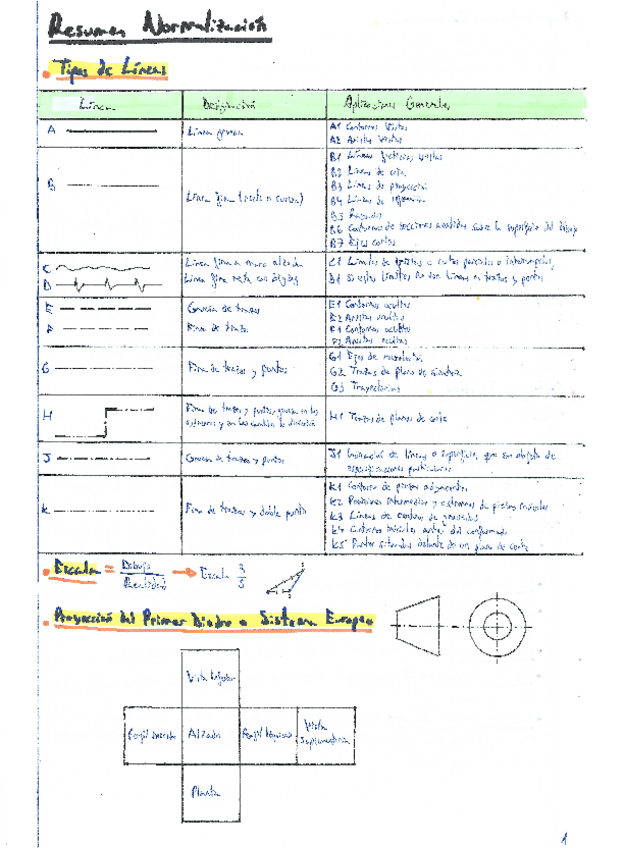 Resumen Normalización
Tipos de Líneas
Línea Designación Aplicaciones Generales
A Línea gruesa
A1 Contornos Vistos
A2 Aristas Vistas
B Línea fina (recta o curva)
B1 Líneas ficticias vistas
B2 Líneas de cota
B3 Líneas de proyección
B4 Líneas de
B5 Rayados
B6 Contornos de secciones abatidas sobre la superficie del dibujo
B7 Ejes cortos
C Línea fina a mano alzada
C1 Límites de vistas o cortes parciales o interrumpidos,
D Línea fina recta con zigzag
D1 si estos límites no son líneas a trazos y puntos
E Gruesa de trazos
E1 Contornos ocultos
E2 Aristas ocultas
F Fina de trazos
F1 Contornos ocultos
F2 Aristas ocultas
G Fina de trazos y puntos
G1 Ejes de revolución
G2 Trazas de plano de simetría
G3 Trayectorias
H Fina de trazos y puntos, gruesa en los
extremos y en los cambios de dirección
H1 Trazas de planos de corte
J Gruesa de trazos y puntos
J1 Indicación de líneas o superficies que son objeto de
especificaciones particulares
K Fina de trazos y doble punto
K1 Contornos de piezas adyacentes
K2 Posiciones intermedias y extremos de piezas móviles
K3 Líneas de centros de gravedad
K4 Contornos iniciales antes del conformado
K5 Partes situadas delante de un plano de corte
Escala = Dibujo
Realidad
→ Escala 3
5
Proyección del Primer Diedro o Sistema Europeo
Vista Inferior
Perfil derecho Alzado Perfil Izquierdo Vista
Suplementaria
Planta
1